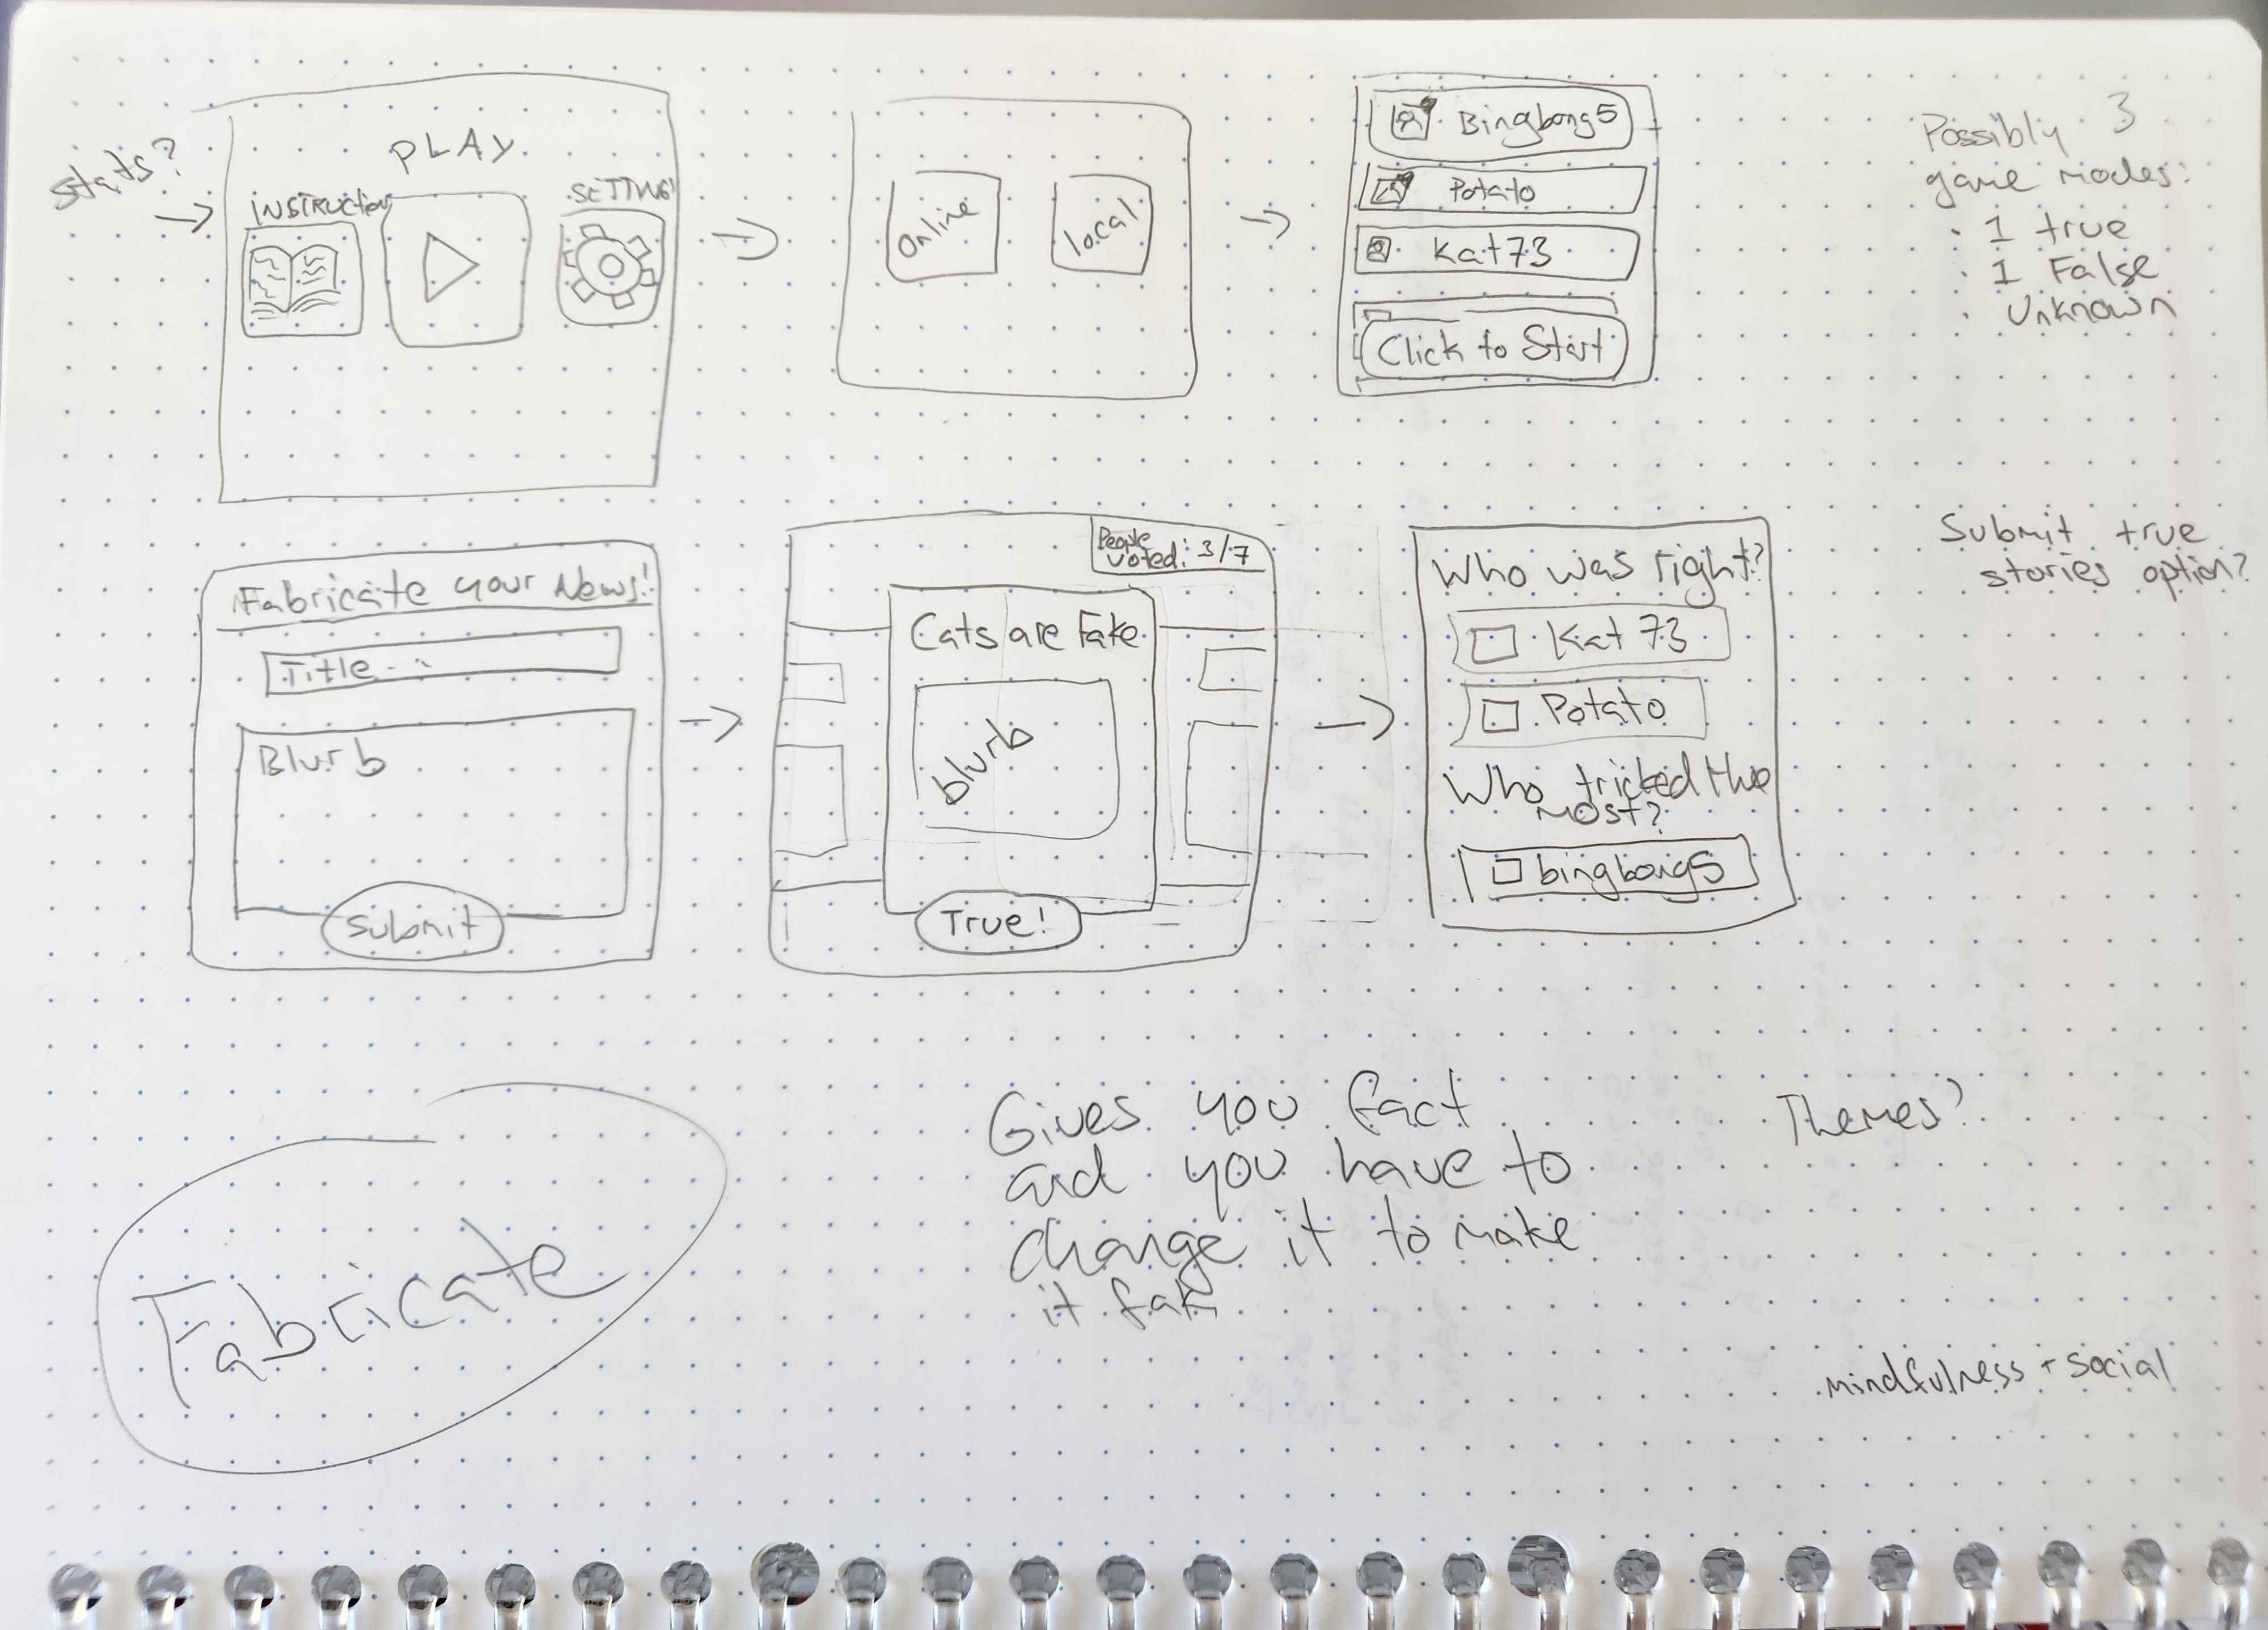 Stats?
PLAY
INSTRUCTION
SETTINGS
Online
local
Bingbong5
Potato
Kat73
Click to Start
Possibly 3
game modes:
1 true
1 False
Unknown
Fabricate your News!
Title...
Blurb
Submit
People
voted: 3/7
Cats are Fake
blurb
True!
Who was right?
Kat 73
Potato
Who tricked the
most?
bingbong5
Submit true
stories option?
Fabricate
Gives you fact
and you have to
change it to make
it fake
Themes?
mindfulness + social